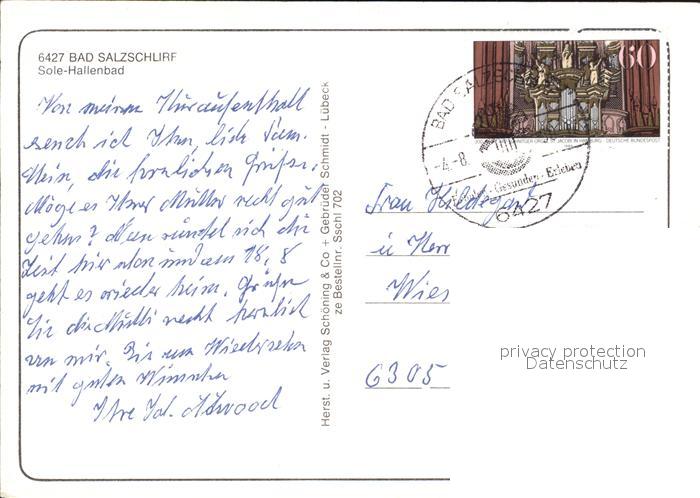 6427 BAD SALZSCHLIRF
Sole-Hallenbad
Von meinem Kuraufenthalt
send ich Ihnen, liebe Fam.
die herzlichen Grüße.
Möge es Ihrer Mutter recht gut
gehen? Nun rundet sich die
Zeit hier und am 18. 8
geht es wieder heim. Grüßen
Sie die Mutti recht herzlich
von mir. Bis zum Wiedersehen
mit guten Wünschen
Ihre
Herst. u. Verlag Schöning & Co + Gebrüder Schmidt - Lübeck
ze Bestellnr. Sschl 702
60
DEUTSCHE BUNDESPOST
BAD SALZSC
-4.-8.
Gesunden - Erleben
6427
Frau Hildegard
u Herr
Wies
6305
privacy protection
Datenschutz